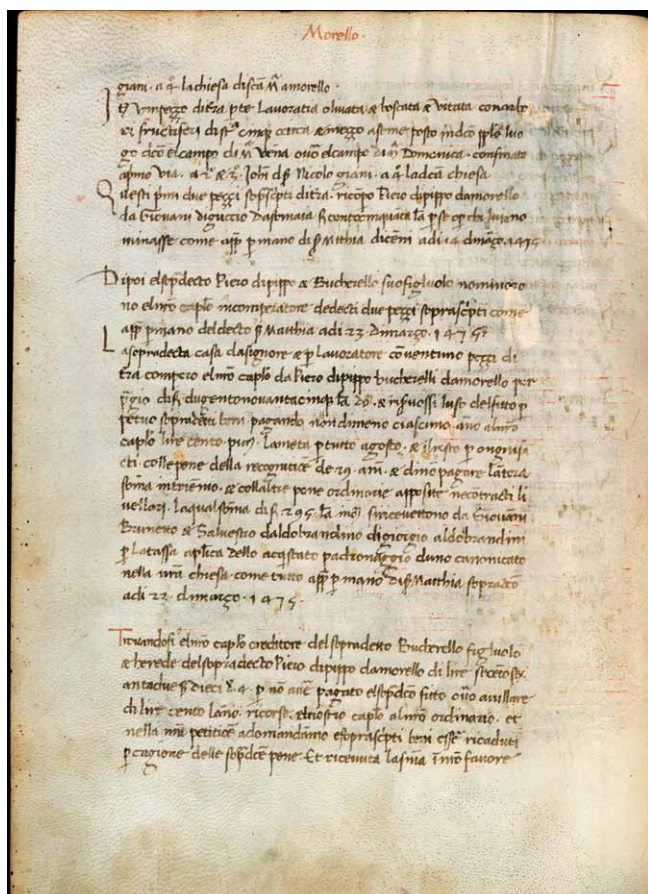 Morello.
giani. a 4º la chiesa di sca Mª a morello.
Un pezzo di tra pte. Lavoratia olivata & boscata & vitata con arbo
ri fructiferi di stª cinque circa & mezzo a seme posto in dco pplo luo
go dco el campo di Mª Vena ovo el campo di Domenica. confinato
a pmo via. a 2º & 3º Iohi di Nicolo giani. a 4º la dca chiesa
Questi pmi due pezzi sopscpti di tra. ricopo Piero di pippo da morello
da Giovani di
come app p mano di s Mathia adi 14 dmarzo. 1475
Dipoi el sopdecto Piero di pippo & Bucherello suo figluolo nominoro
no el nro caplo in comperatore dedecti due pezzi soprascpti come
app p mano del decto s Matthia adi 23 dimarzo. 1475
La sopradecta casa da signore & p lavoratore con ventuno pezzi di
tra compero el nro caplo da Piero di pippo bucherelli da morello per
pgio di f. dugento novantacinque la. & riservossi luso del fito p
petuo sopradetti beni. pagando nondimeno ciascuno ano al nro
caplo lire cento. La meta p tutto agosto. & il resto p ognisa
cti. colle pene della recognitioe de 29 ani. & di no pagare lantera
soma in triennio. & collaltre pene ordinarie apposite ne cotracti li
vellari. La qual soma di f. 295. si ricevettono da Giovani
Brunetto & Salvestro daldobrandino di giorgio aldobrandini
p la tassa aplica dello acqstato padronaggio duno canonicato
nella nra chiesa. come tutto app p mano di s Matthia sopradco
adi 22. dmarzo. 1475.
Trovandosi el nro caplo creditore del sopradetto Bucherello figluolo
& herede del sopradecto Piero di pippo da morello di lire secetoses
antadue s dieci d. 4. p no aver pagato el sopdco fitto ovo a livellare
di lire cento lano. ricorse el nostro caplo al nro ordinario. et
nella nra petitioe adomandamo e soprascpti beni esser ricaduti
p cagione delle sopdce pene. Et ricevuta la snia i nro favore